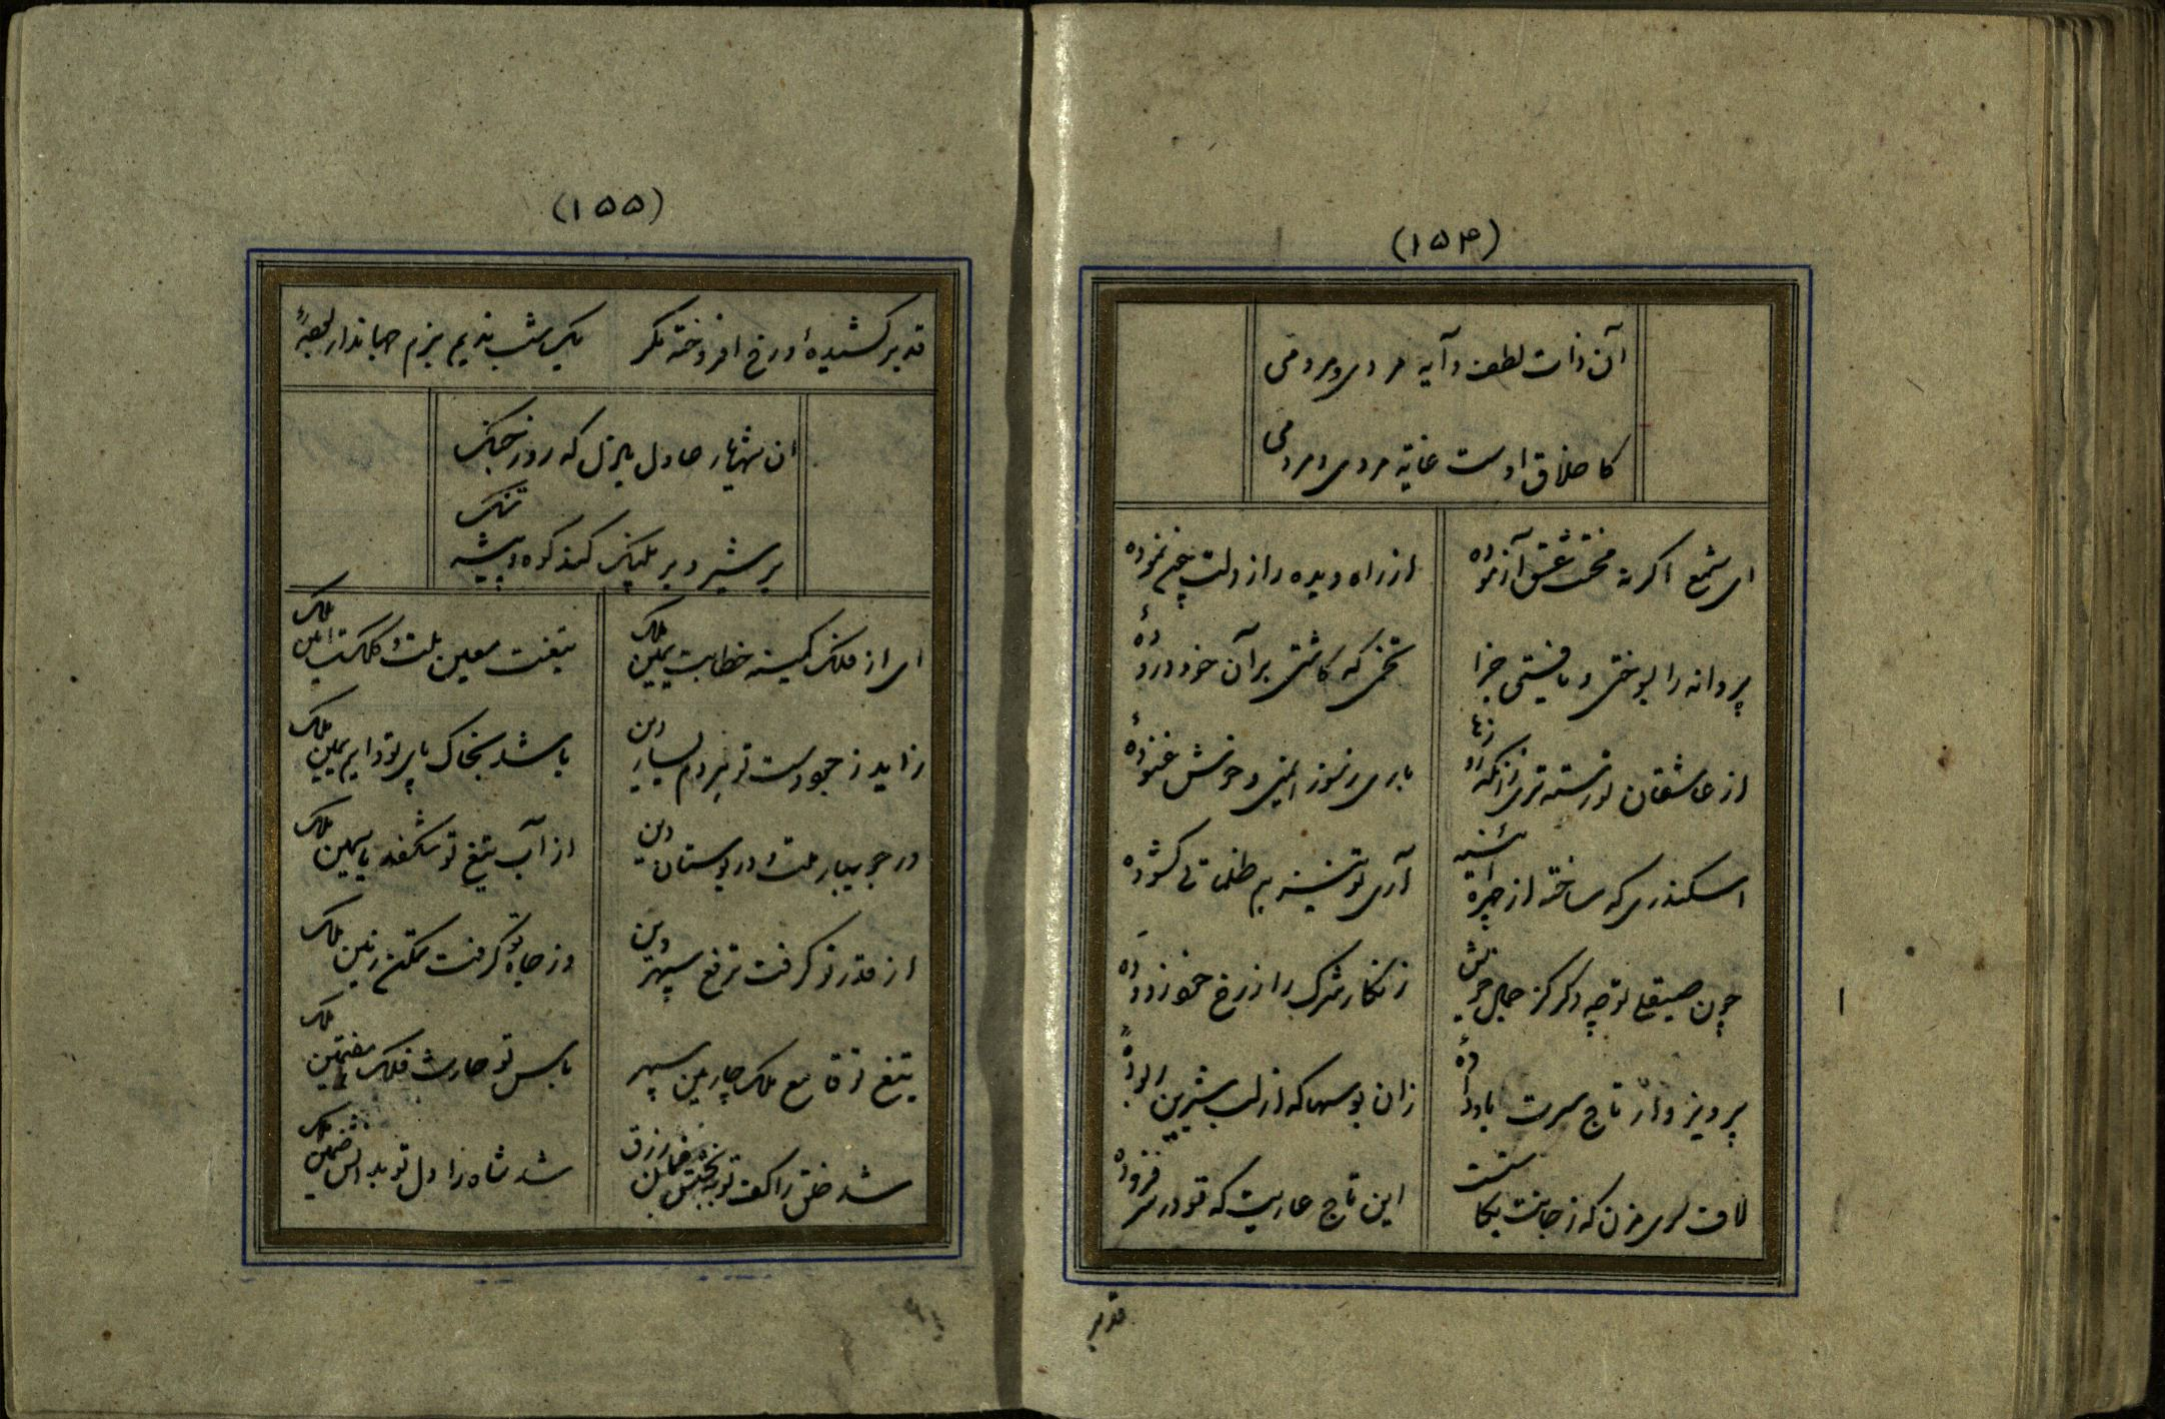 (۱۵۴)
آن ذات لطف و آیه مردی و مردمی
کاخلاق اوست غایة مردی و مردمی
ای شمع اگر نه محنت عشق آزموده
از راه دیده راز دلت چیم نموده
پروانه را بسوختی و یافتی جزا
تخمی که کاشتی بر آن خود دروده
از عاشقان تو رسته تری زانکه
باری بسوز ایمنی و خوش غنوده
اسکندری که ساخته از چهره آئینه
آری تو نیز هم ظلماتی گشوده
چون صیقلی تو چه دگر کز جمال خویش
زنگار شرک را ز رخ خود زدوده
پرویز وار تاج سرت باد داده
زان بوسها که از لب شیرین ربوده
لاف سری مزن که ز جانت بکاست
این تاج عاریت که تو در سر فزوده
قد بر
(۱۵۵)
قد بر کشیده و رخ افروخته مگر
یک شب ندیم بزم جهاندار بوده
آن شهریار عادل باذل که روز جنگ
بر شیر و بر پلنگ کند کوه و بیشه تنگ
ای از فلک کمینه خطابت یمین ملک
تیغت معین ملت و کلکت امین ملک
زاید ز جود دست تو هر دم یسار دین
باشد بخاک پای تو دایم یمین ملک
در جویبار ملت و در بوستان دین
از آب تیغ تو شکفد یاسمین ملک
از قدر تو گرفت ترفع سپهر دین
وز جاه تو گرفت تمکن زمین ملک
تیغ تو قامع ملک چارمین سپهر
باس تو حارث فلک هفتمین ملک
شد خلق را کف تو ببخشش ضمان رزق
شد شاه را دل تو بدانش ضمین ملک